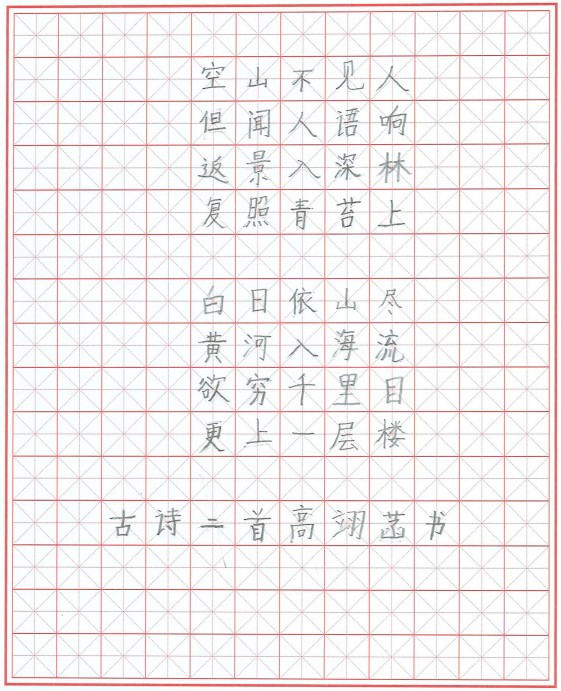 空山不见人
但闻人语响
返景入深林
复照青苔上
白日依山尽
黄河入海流
欲穷千里目
更上一层楼
古诗二首高翊菡书